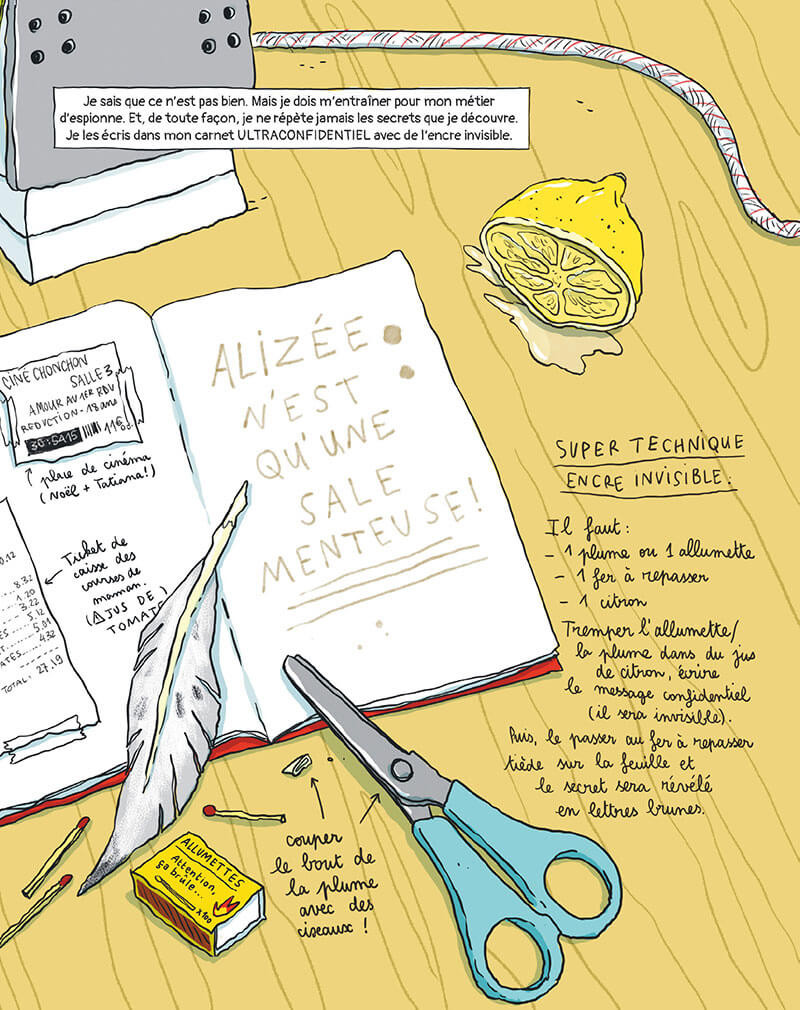 Je sais que ce n'est pas bien. Mais je dois m'entraîner pour mon métier
d'espionne. Et, de toute façon, je ne répète jamais les secrets que je découvre.
Je les écris dans mon carnet ULTRACONFIDENTIEL avec de l'encre invisible.
CINÉ CHONCHON
SALLE 3
AMOUR AU 1ER RDV
REDUCTION - 18 ans
30:5415
place de cinéma
(Noël + Tatiana!)
Ticket de
caisse des
courses de
maman.
(⚠ JUS DE)
TOMATE
0.12
8.32
1.20
3.22
5.12
5.01
4.32
TOTAL: 27.19
ALIZÉE
N'EST
QU'UNE
SALE
MENTEUSE!
SUPER TECHNIQUE
ENCRE INVISIBLE.
Il faut:
- 1 pluma ou 1 allumette
- 1 fer à repasser
- 1 citron
Tremper l'allumette/
la plume dans du jus
de citron, écrire
le message confidentiel
(il sera invisible).
Puis, le passer au fer à repasser
tiède sur la feuille et
le secret sera révélé
en lettres brunes.
couper
le bout de
la plume
avec des
ciseaux!
ALLUMETTES
Attention,
ça brûle...
x100